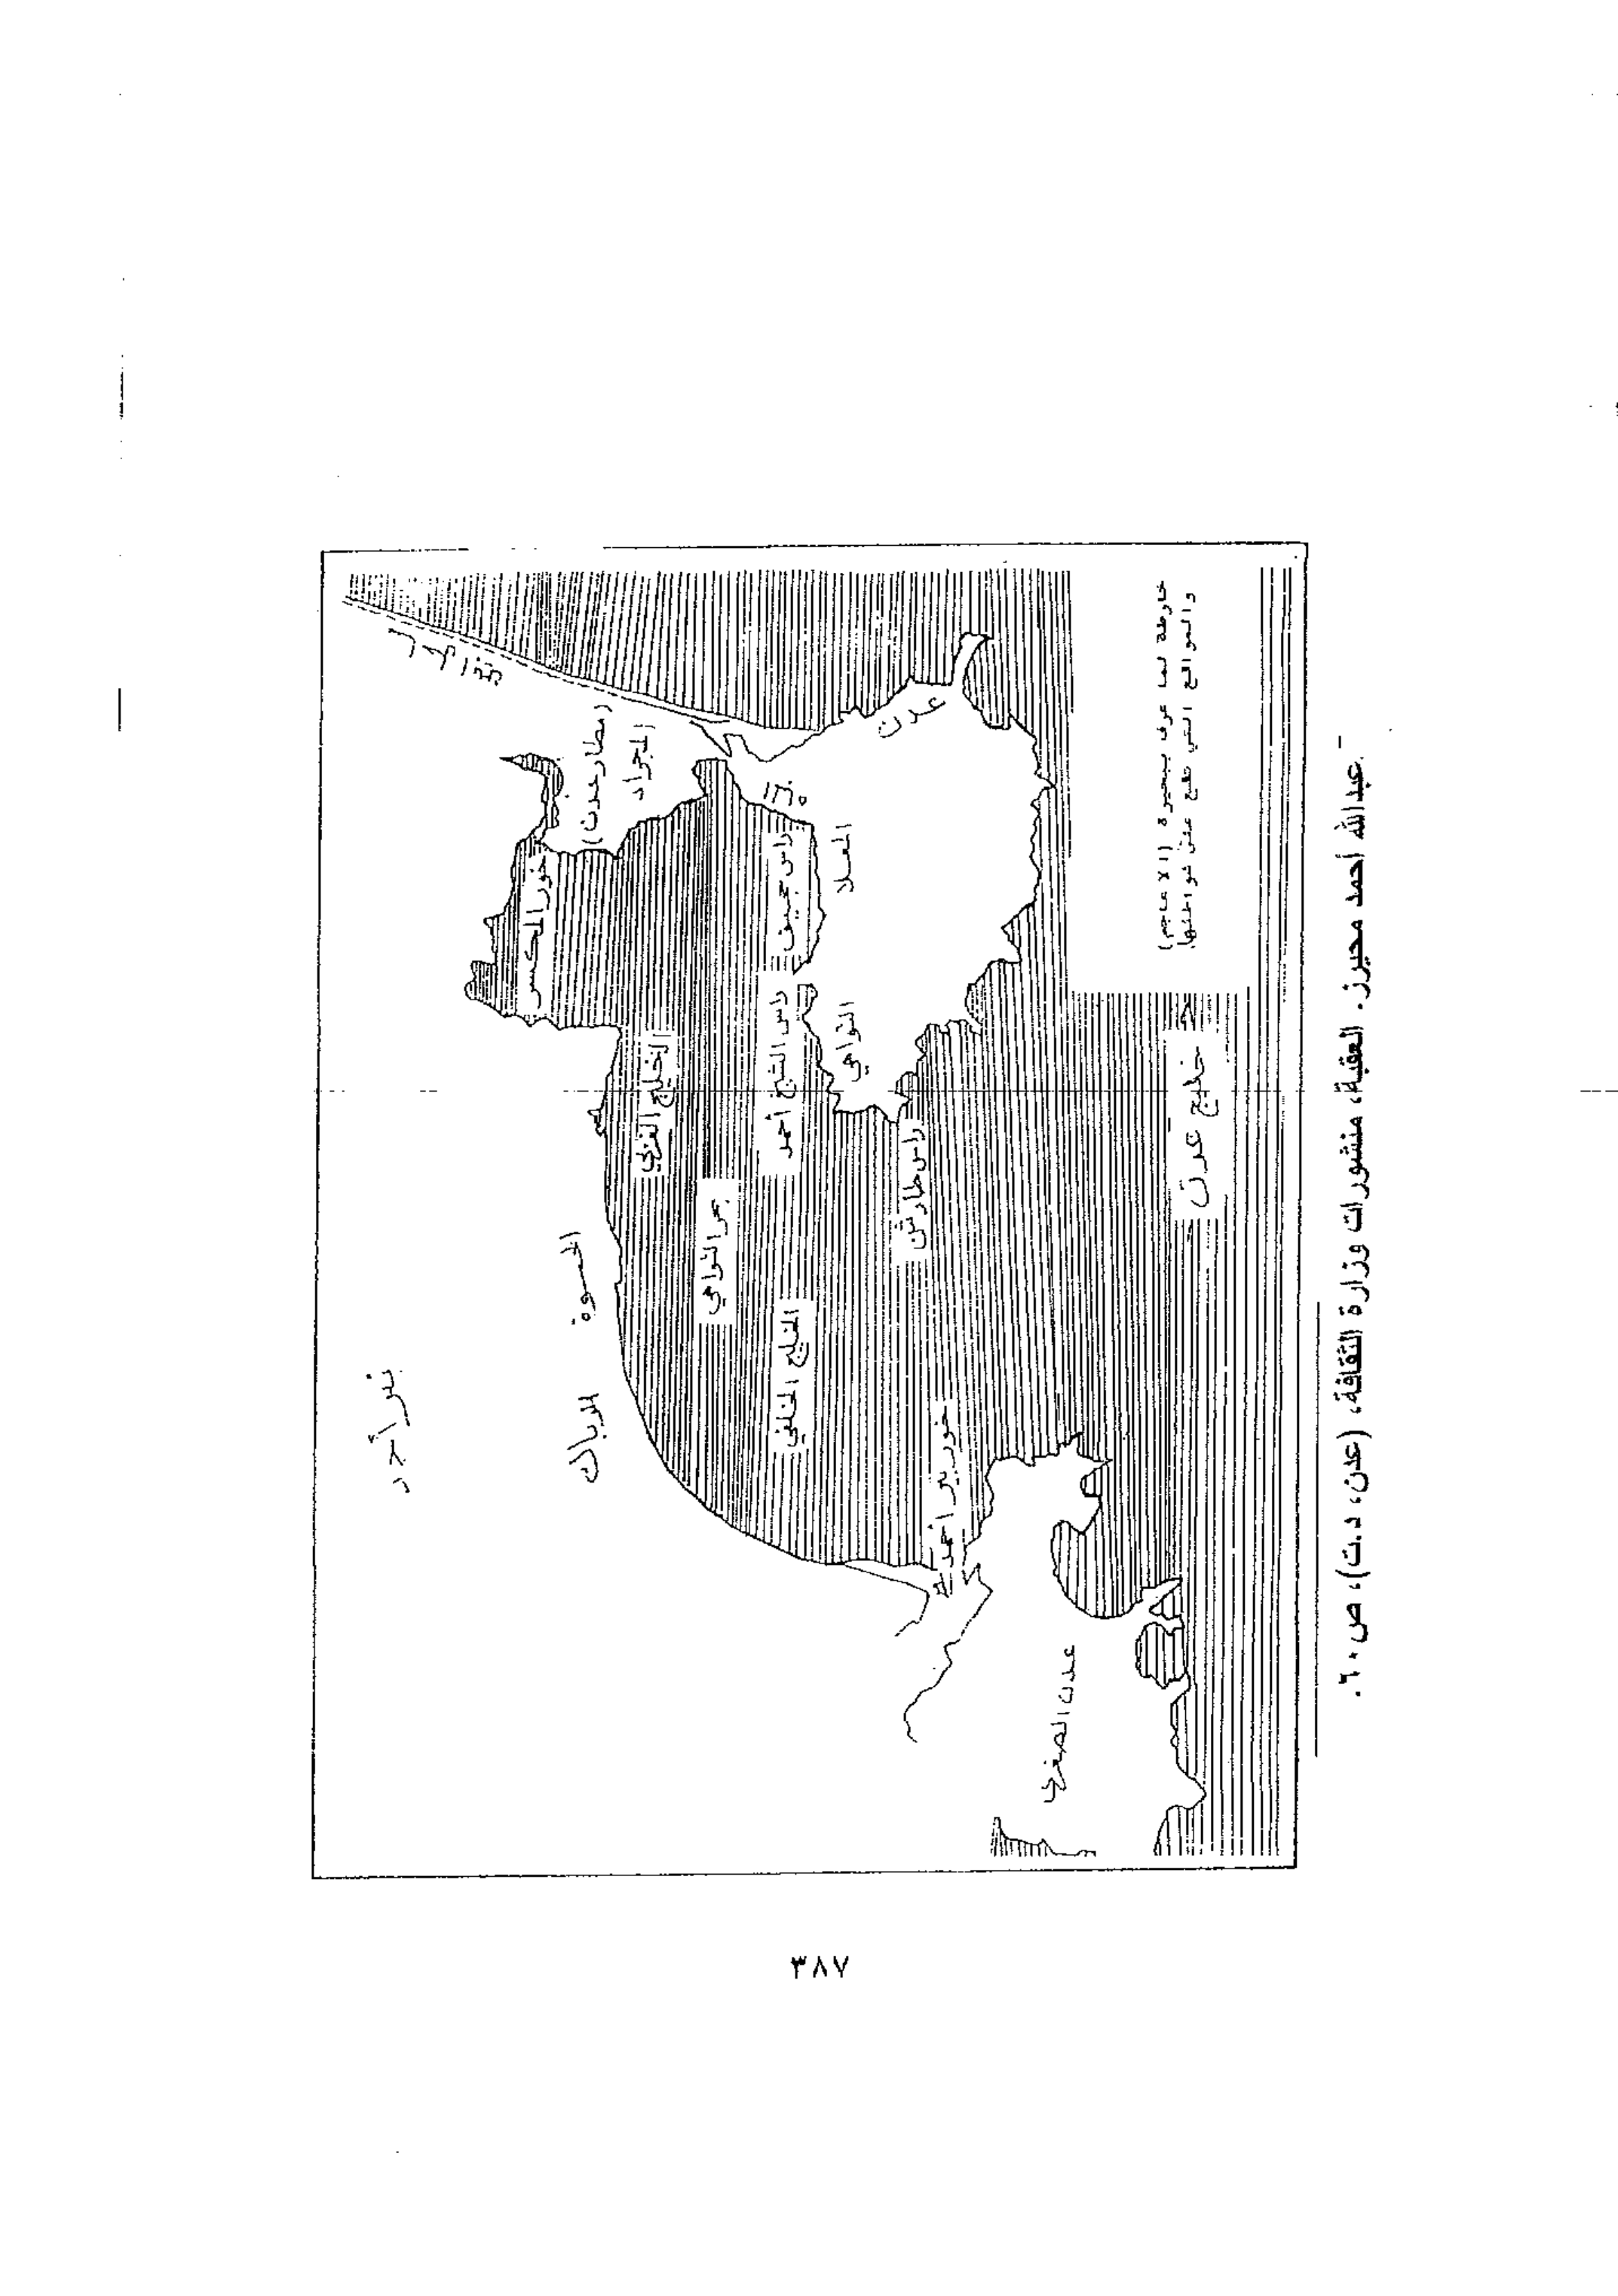 بئر أحمد
الحسوة
البرباك
خور المكسر
(مطار عدن)
المجراد
الخليج الغربي
بحر التواهي
الخليج الخلفي
رأس حجيف
رأس الشيخ أحمد
المعلا
التواهي
عدن
رأس طارشن
خور بير أحمد
عدن الصغرى
خليج عدن
خارطة لما عرف ببحيرة (الاعاجم)
والمواقع التي تقع على شواطئها
- عبدالله أحمد محيرز. العقبة، منشورات وزارة الثقافة، (عدن، د.ت)، ص٦٠.
٣٨٧